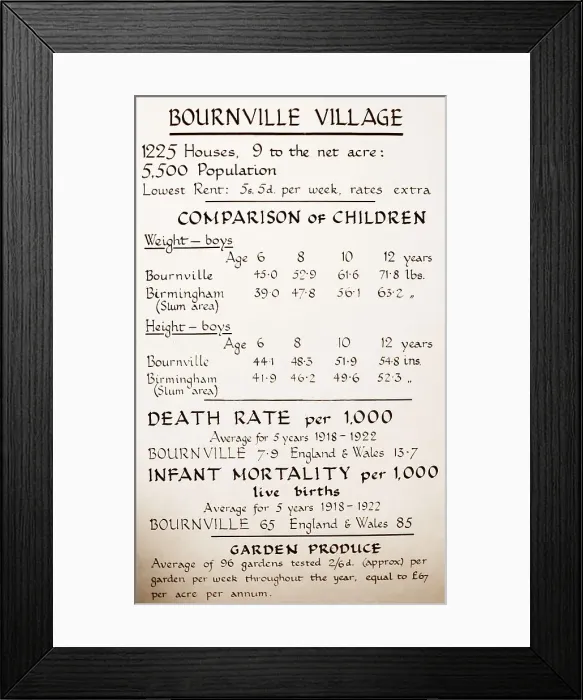 BOURNVILLE VILLAGE
1225 Houses, 9 to the net acre:
5,500 Population
Lowest Rent: 5s. 5d. per week, rates extra
COMPARISON OF CHILDREN
Weight – boys
Age 6 8 10 12 years
Bournville 45·0 52·9 61·6 71·8 lbs.
Birmingham 39·0 47·8 56·1 63·2 „
(Slum area)
Height – boys
Age 6 8 10 12 years
Bournville 44·1 48·3 51·9 54·8 ins.
Birmingham 41·9 46·2 49·6 52·3 „
(Slum area)
DEATH RATE per 1,000
Average for 5 years 1918 – 1922
BOURNVILLE 7·9 England & Wales 13·7
INFANT MORTALITY per 1,000
live births
Average for 5 years 1918 – 1922
BOURNVILLE 65 England & Wales 85
GARDEN PRODUCE
Average of 96 gardens tested 2/6d. (approx) per
garden per week throughout the year, equal to £67
per acre per annum.